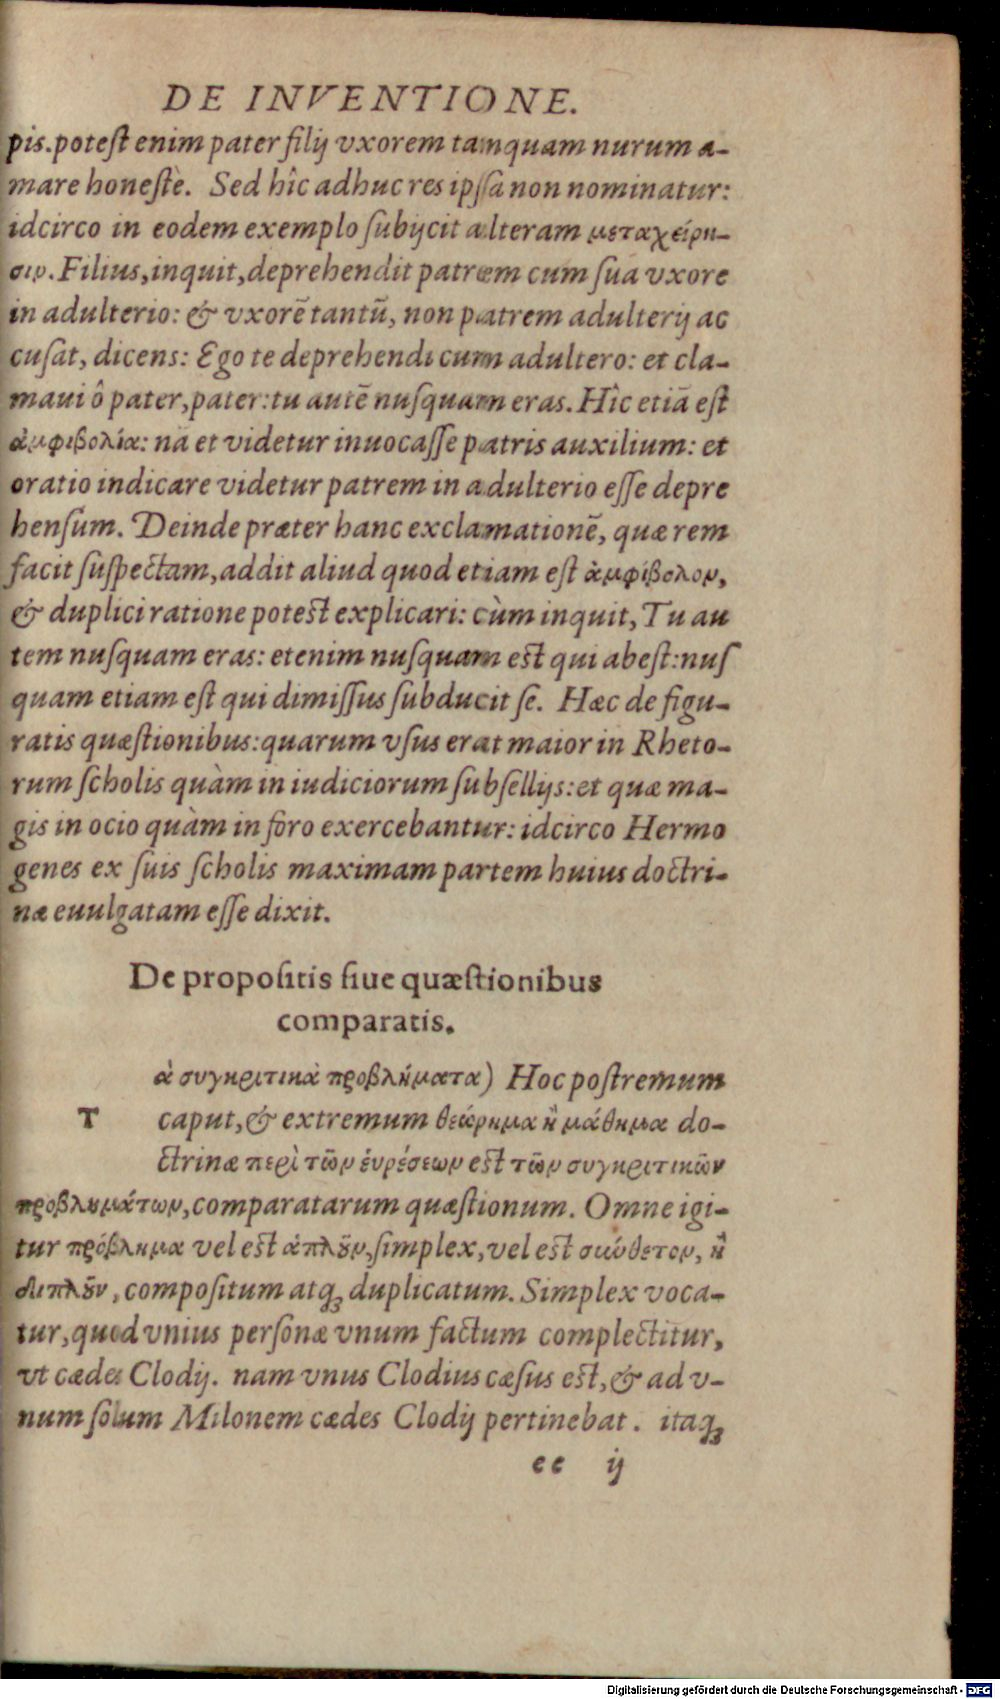 DE INVENTIONE.
pis. potest enim pater filij vxorem tanquam nurum a-
mare honestè. Sed hîc adhuc res ipsa non nominatur:
idcirco in eodem exemplo subijcit alteram μεταχείρη-
σιν. Filius, inquit, deprehendit patrem cum sua vxore
in adulterio: & vxorē tantū, non patrem adulterij ac
cusat, dicens: Ego te deprehendi cum adultero: et cla-
maui ô pater, pater: tu autē nusquam eras. Hîc etiā est
ἀμφιβολία: nā et videtur inuocasse patris auxilium: et
oratio indicare videtur patrem in adulterio esse depre
hensum. Deinde præter hanc exclamationē, quæ rem
facit suspectam, addit aliud quod etiam est ἀμφίβολον,
& duplici ratione potest explicari: cùm inquit, Tu au
tem nusquam eras: etenim nusquam est qui abest: nus
quam etiam est qui dimissus subducit se. Hæc de figu-
ratis quæstionibus: quarum vsus erat maior in Rheto-
rum scholis quàm in iudiciorum subsellijs: et quæ ma-
gis in ocio quàm in foro exercebantur: idcirco Hermo
genes ex suis scholis maximam partem huius doctri-
næ euulgatam esse dixit.
De propositis siue quæstionibus
comparatis.
Τὰ συγκριτικὰ προβλήματα) Hoc postremum
caput, & extremum θεώρημα ἢ μάθημα do-
ctrinæ περὶ τῶν ἑυρέσεων est τῶν συγκριτικῶν
προβλημάτων, comparatarum quæstionum. Omne igi-
tur πρόβλημα vel est ἁπλοῦν, simplex, vel est σύνθετον, ἢ
διπλοῦν, compositum atq; duplicatum. Simplex voca-
tur, quod vnius personæ vnum factum complectitur,
vt cædes Clodij. nam vnus Clodius cæsus est, & ad v-
num solum Milonem cædes Clodij pertinebat. itaq;
ee ij
Digitalisierung gefördert durch die Deutsche Forschungsgemeinschaft - DFG